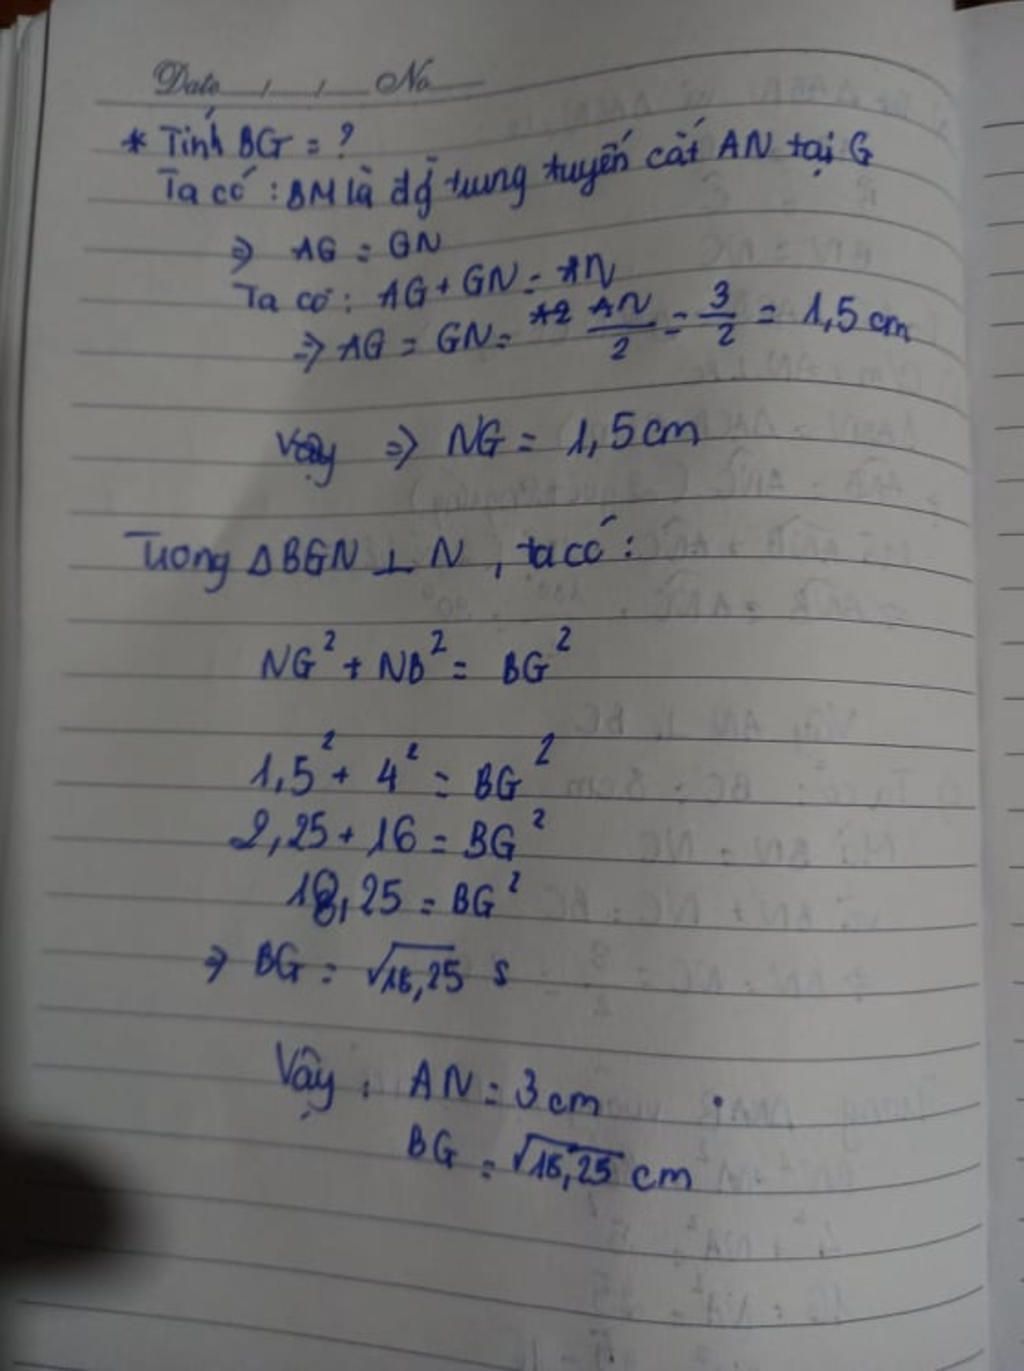 Date / / No
* Tính BG = ?
Ta có : BM là đg tung tuyến cắt AN tại G
⇒ AG = GN
Ta có : AG + GN = AN
⇒ AG = GN = AN/2 = 3/2 = 1,5 cm
Vậy ⇒ NG = 1,5 cm
Tuong ΔBGN ⊥ N , ta có :
NG² + NB² = BG²
1,5² + 4² = BG²
2,25 + 16 = BG²
18,25 = BG²
⇒ BG = √18,25 s
Vậy : AN = 3 cm
BG = √18,25 cm